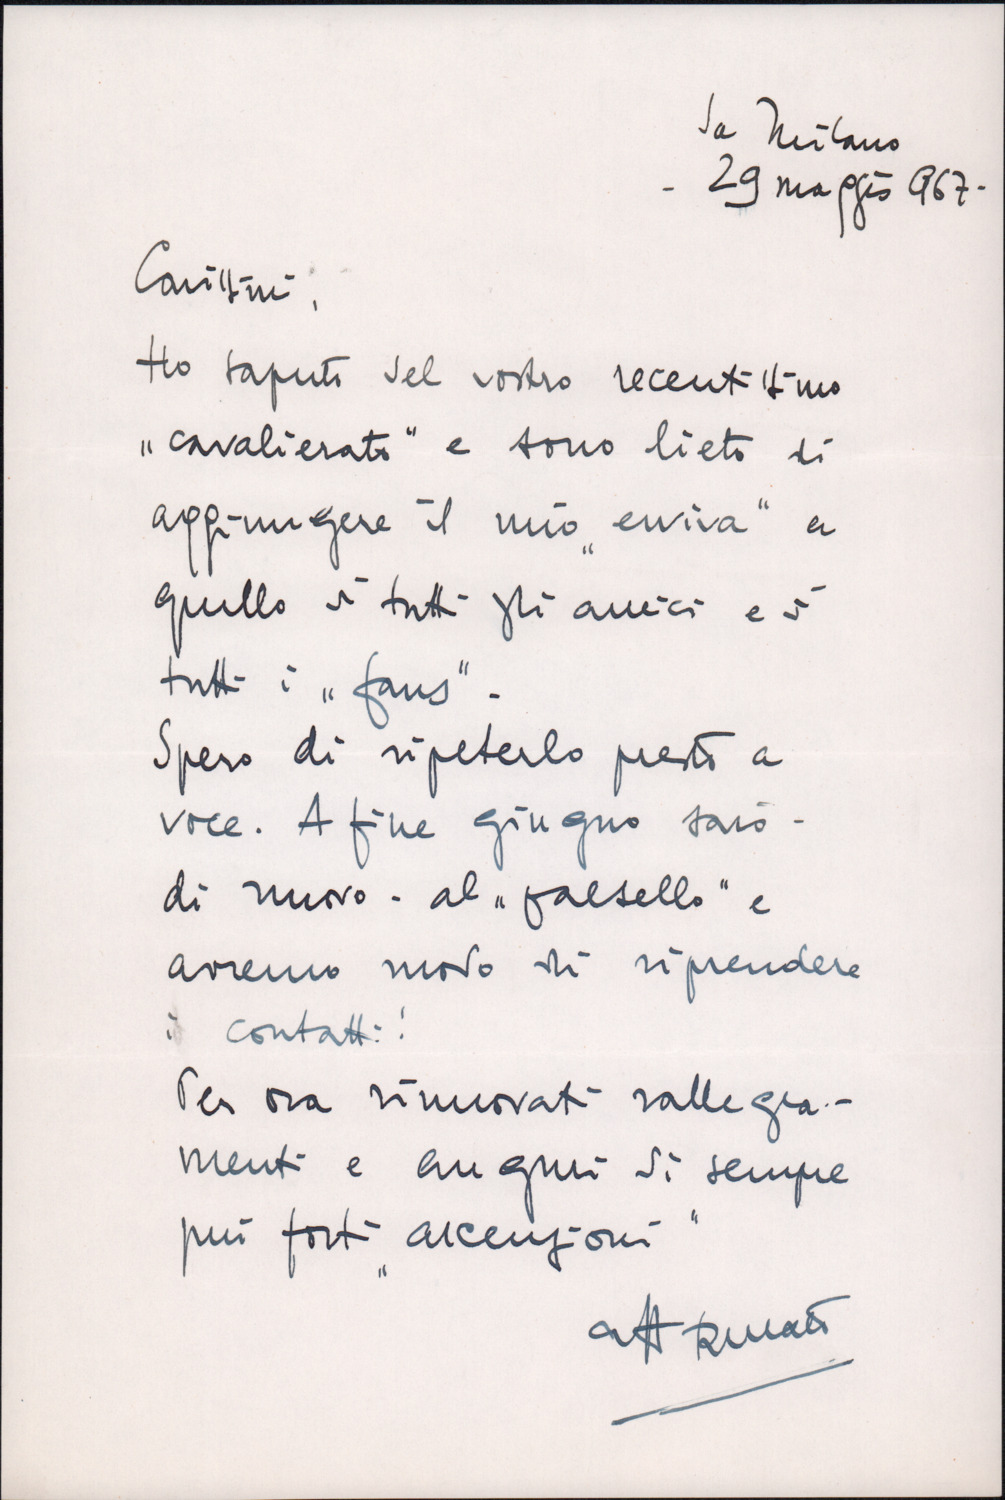 da Milano
- 29 maggio 967 -
Carissimi,
Ho saputo del vostro recentissimo
"cavalierato" e sono lieto di
aggiungere il mio "evviva" a
quello di tutti gli amici e di
tutti i "fans" -
Spero di ripeterlo presto a
voce. A fine giugno sarò -
di nuovo - al "falsello" e
avremo modo di riprendere
i contatti!
Per ora rinnovati rallegra-
menti e auguri di sempre
più forti "ascensioni"
aff Renato